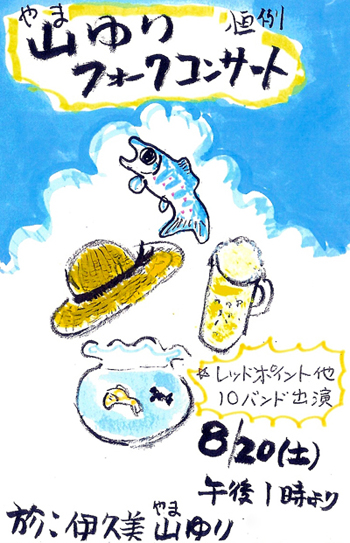 恒例
やま
山ゆり
フォークコンサート
*レッドポイント他
10バンド出演
8/20(土)
午後1時より
於:伊久美 山ゆり
やま